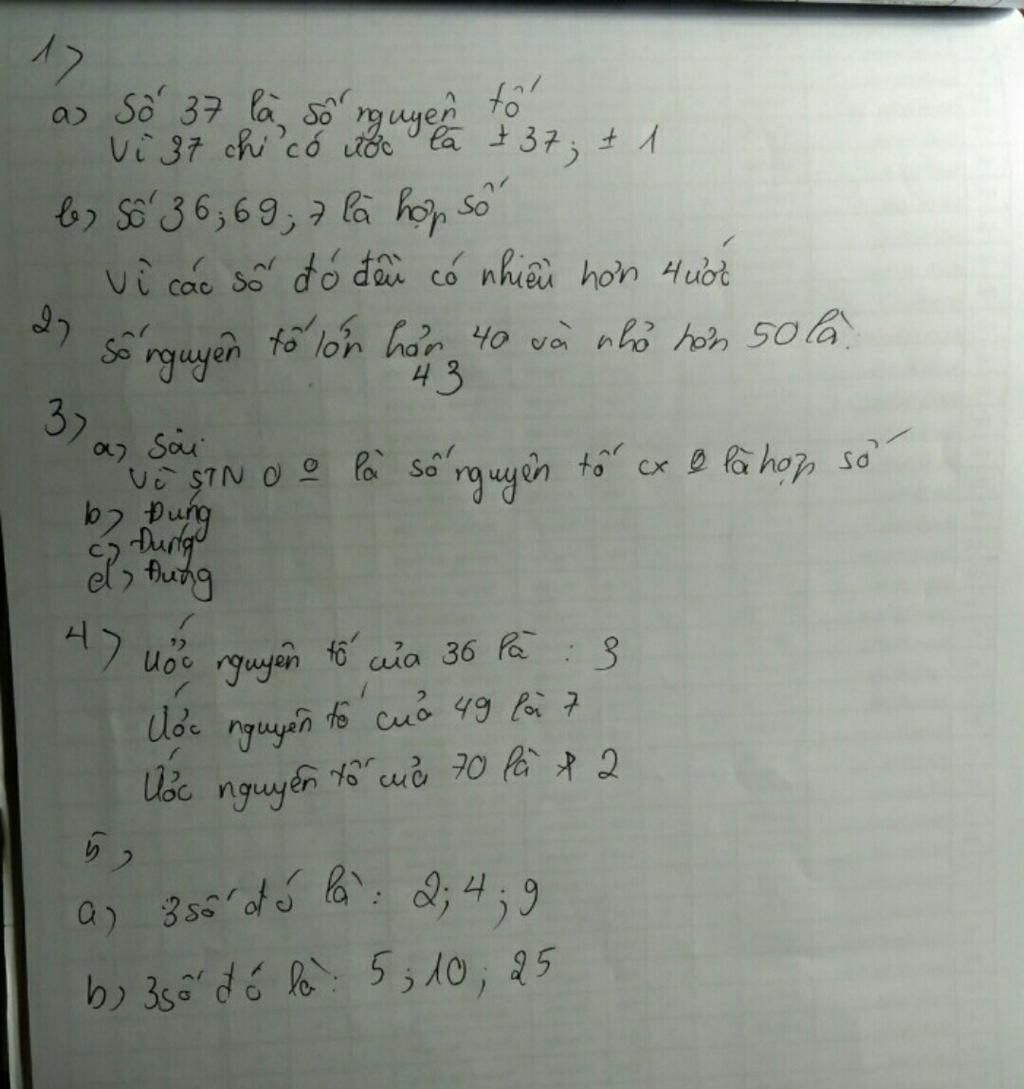 1>
a> Số 37 là số nguyên tố
Vì 37 chỉ có ước là ± 37; ± 1
b> Số 36; 69; 7 là hợp số
Vì các số đó đều có nhiều hơn 4 ước
2>
Số nguyên tố lớn hơn 40 và nhỏ hơn 50 là:
43
3>
a> Sai
Vì STN 0 là số nguyên tố cx là hợp số
b> Đúng
c> Đúng
d> Đúng
4> Ước nguyên tố của 36 là : 3
Ước nguyên tố của 49 là 7
Ước nguyên tố của 70 là 2
5>
a) 3 số đó là: 2; 4; 9
b) 3 số đó là: 5; 10; 25